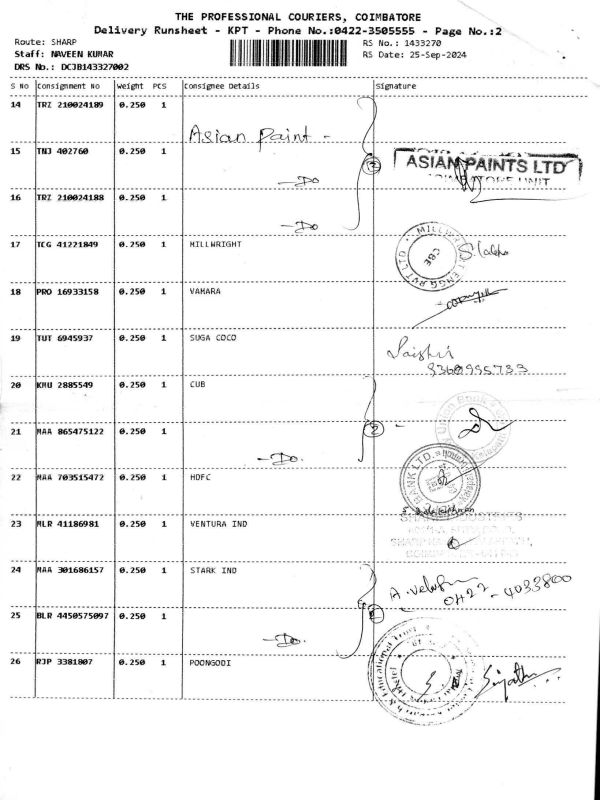 THE PROFESSIONAL COURIERS, COIMBATORE
Delivery Runsheet - KPT - Phone No.:0422-3505555 - Page No.:2
Route: SHARP
Staff: NAVEEN KUMAR
DRS No.: DCJB143327002
RS No.: 1433270
RS Date: 25-Sep-2024
S No Consignment No Weight PCS Consignee Details Signature
14 TRZ 210024189 0.250 1 Asian Paint -
15 TNJ 402760 0.250 1 - Do
3
ASIAN PAINTS LTD
UNIT
16 TRZ 210024188 0.250 1 - Do
17 TCG 41221849 0.250 1 MILLWRIGHT
CBE
18 PRO 16933158 0.250 1 VAHARA
19 TUT 6945937 0.250 1 SUGA COCO
20 KMU 2885549 0.250 1 CUB
21 MAA 865475122 0.250 1 - Do.
2
22 MAA 703515472 0.250 1 HDFC
BANK LTD.
23 MLR 41186981 0.250 1 VENTURA IND
24 MAA 301686157 0.250 1 STARK IND
0422 - 4033800
25 BLR 4450575097 0.250 1 - Do.
26 RJP 3381807 0.250 1 POONGODI